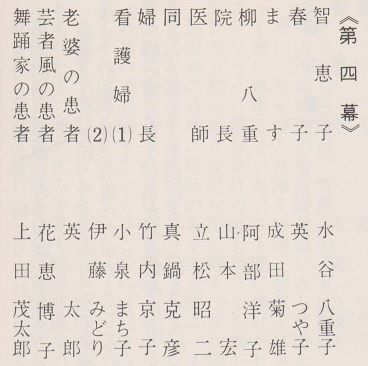 《第四幕》
智恵子 水谷八重子
春子 英つや子
ます 成田菊雄
柳八重 阿部洋子
院長 山本宏
医師 立松昭二
同 真鍋克彦
婦長 竹内京子
看護婦(1) 小泉まち子
(2) 伊藤みどり
老婆の患者 英太郎
芸者風の患者 花恵博子
舞踊家の患者 上田茂太郎